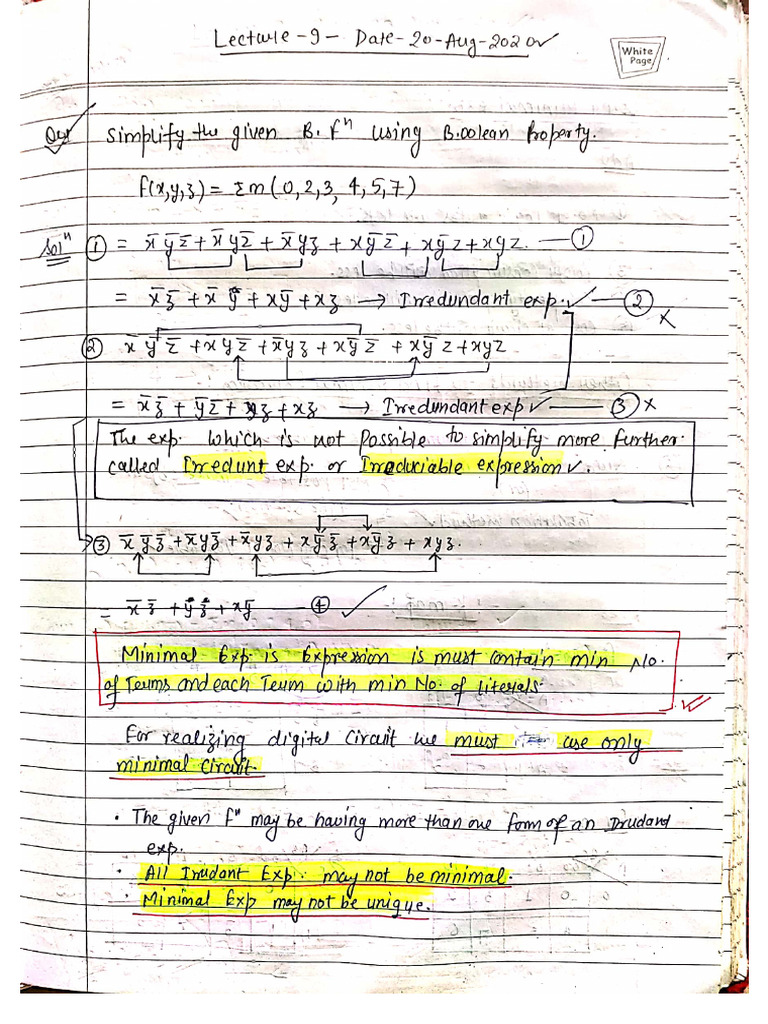 Lecture - 9 - Date - 20 - Aug - 2020
White Page
Que Simplify the given B. fⁿ using Boolean Property.
f(x,y,z) = Σm(0,2,3, 4,5,7)
Solⁿ ① = x̄ ȳ z̄ + x̄ y z̄ + x̄ y z + x ȳ z̄ + x ȳ z + x y z. — ①
= x̄ z̄ + x̄ y + x ȳ + x z → Irredundant exp. ✓ — ② ×
② x̄ ȳ z̄ + x̄ y z̄ + x̄ y z + x ȳ z̄ + x ȳ z + x y z
= x̄ z̄ + ȳ z̄ + y z + x z → Irredundant exp ✓ — ③ ×
The exp. which is not Possible to simplify more further.
called Irredunt exp. or Irreduciable expression ✓.
③ x̄ ȳ z̄ + x̄ y z̄ + x̄ y z + x ȳ z̄ + x ȳ z + x y z.
= x̄ z̄ + y z + x ȳ — ④ ✓
Minimal Exp is Expression is must contain min No.
of Terms and each Term with min No. of literals.
For realizing digital Circuit we must use only
minimal Circuit.
• The given fⁿ may be having more than one form of an Irudand
exp.
• All Irudant Exp. may not be minimal.
• Minimal Exp may not be unique.